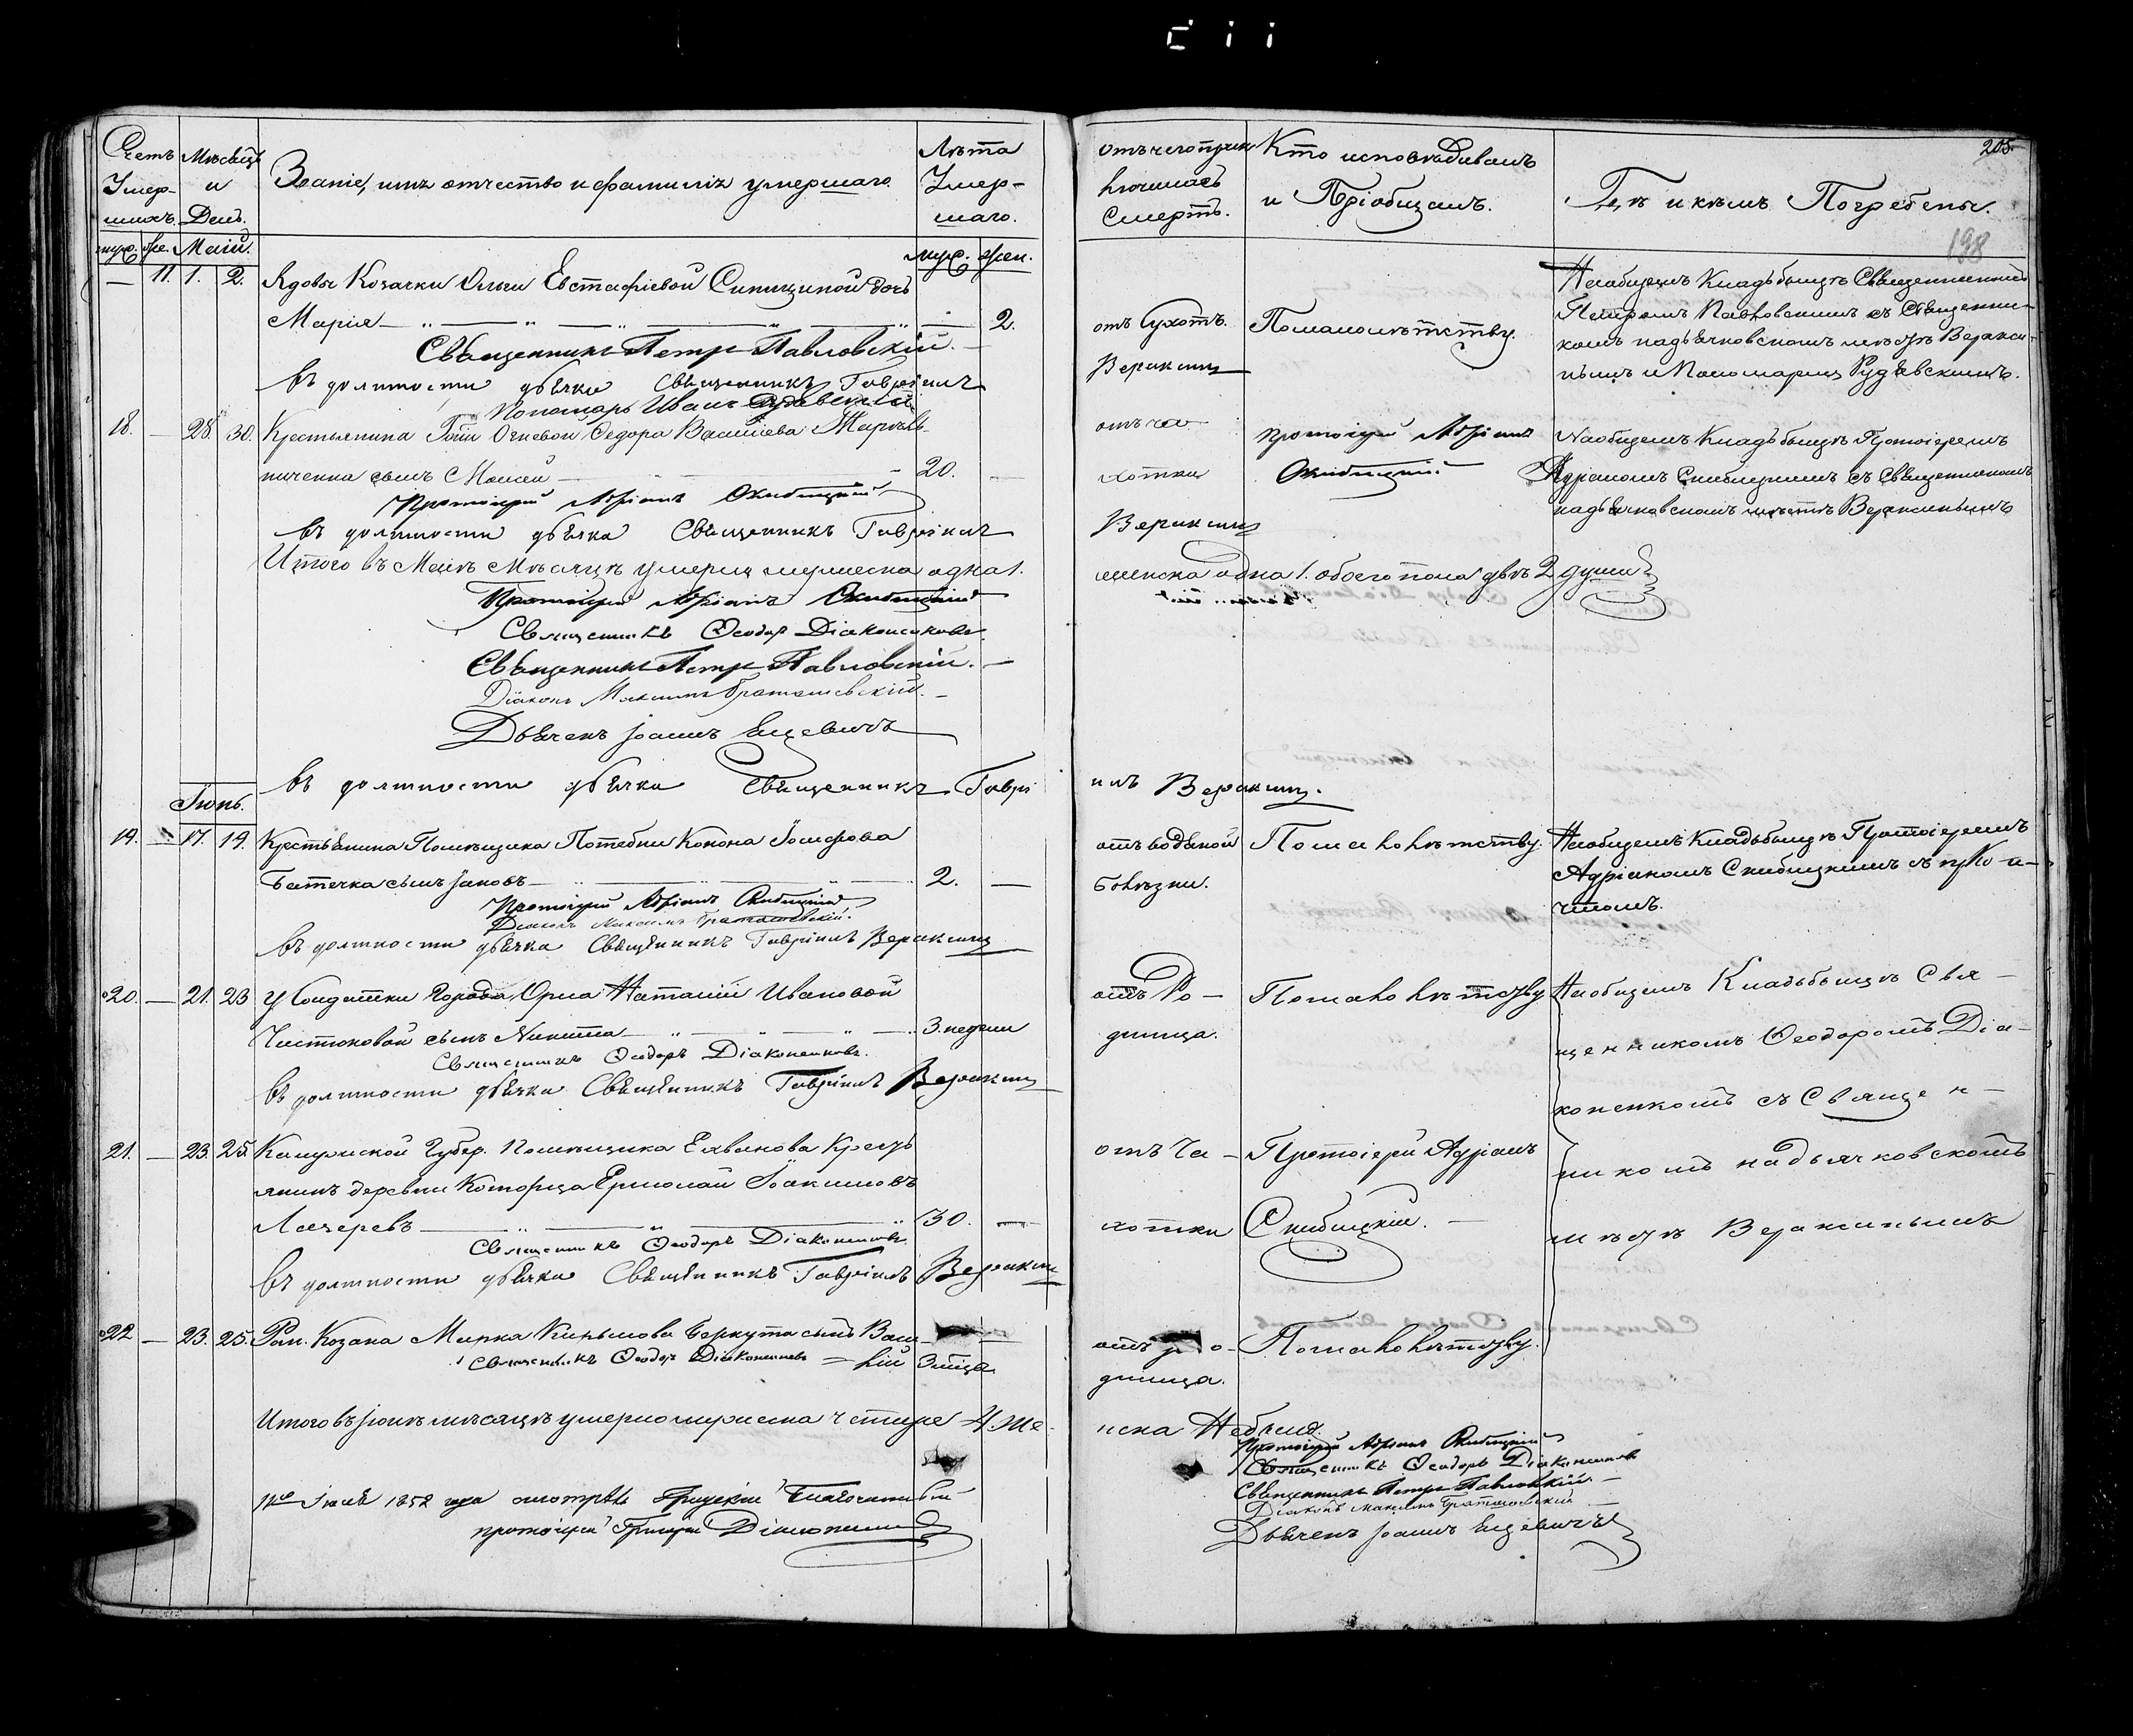 205
198
Счетъ Умер-шихъ.
Мѣсяцъ и День.
Званіе, имя отчество и фамилія умершаго.
Лѣта Умер-шаго.
отъ чего приключилась Смерть.
Кто исповѣдивалъ и Пріобщалъ.
Гдѣ и кѣмъ Погребены.
муж. же. Маій.
муж. жен.
— 11. 1. 2. Вдовы Козачки Ольги Евстафіевой Синициной дочь
Марія — 2.
Священникъ Петръ Павловскій.
въ должности дьячка Священникъ Гавріилъ
Веракинъ
Пономарь Иванъ
отъ Сухотъ.
По малолѣтству.
На общемъ Кладьбищѣ Священникомъ
Петромъ Павловскимъ съ Священни-
комъ на дьячковскомъ мѣстѣ Веракси-
нымъ и Пономаремъ Рудзевскимъ.
18. — 28. 30. Крестьянина Гпжи Огневой Федора Васильева Марчен-
ниченка сынъ Моисей — 20. —
Протоіерей Адріанъ Скибицкій
въ должности дьячка Священникъ Гавріилъ
Веракинъ
отъ ча-
хотки
Протоіерей Адріанъ
Скибицкій
На общемъ Кладьбищѣ Протоіереемъ
Адріаномъ Скибицкимъ съ Священникомъ
на дьячковскомъ мѣстѣ
Итого въ Маіѣ Мѣсяцѣ умерли мужеска одна 1.
женска одна 1. обоего пола двѣ 2 души.
Протоіерей Адріанъ Скибицкій
Священникъ Ѳеодоръ Діаконенковъ
Священникъ Петръ Павловскій.
Діаконъ Максимъ
Дьячекъ Іоаннъ Енцевичъ
въ должности дьячка Священникъ Гаврі
илъ Веракинъ.
Іюнь.
19. — 17. 19. Крестьянина Помѣщика Потебни Конона Іосифова
Батечка сынъ Іаковъ — 2. —
Протоіерей Адріанъ Скибицкій
Діаконъ Максимъ
въ должности дьячка Священникъ Гавріилъ Веракинъ
отъ водяной
болѣзни.
По малолѣтству.
На общемъ Кладьбищѣ Протоіереемъ
Адріаномъ Скибицкимъ съ при-
чтомъ.
20. — 21. 23 у Солдатки Города Орла Наталіи Ивановой
Чистюковой сынъ Никита — 3. недели
Священникъ Ѳеодоръ Діаконенковъ.
въ должности дьячка Священникъ Гавріилъ Веракинъ
отъ Ро-
димца.
По малолѣтству
На общемъ Кладьбищѣ Свя-
щенникомъ Ѳеодоромъ Діа-
коненкомъ съ Священ-
никомъ на дьячковскомъ
мѣстѣ
21. — 23. 25. Калужской Губер. Помѣщика Кресть
янинъ деревни Ермолай Іоакимовъ
Лазеревъ — 30. —
Священникъ Ѳеодоръ Діаконенковъ.
въ должности дьячка Священникъ Гавріилъ Веракинъ
отъ Ча-
хотки
Протоіерей Адріанъ
Скибицкій.
22 — 23. 25. Рай. Козака Марка Кирилова Беркута сынъ Васи-
лій 3 мѣца
Священникъ Ѳеодоръ Діаконенковъ
отъ ро-
димца.
По малолѣтству.
Итого въ Іюнѣ мѣсяцѣ умерло мужеска четыре 4. же-
нска Небыло.
Протоіерей Адріанъ Скибицкій
Священникъ Ѳеодоръ Діаконенковъ
Священникъ Петръ Павловскій.
Діаконъ Максимъ
Дьячекъ Іоаннъ Енцевичъ
11го Іюля 1852 года смотрѣлъ Благочинный
протоіерей Григорій